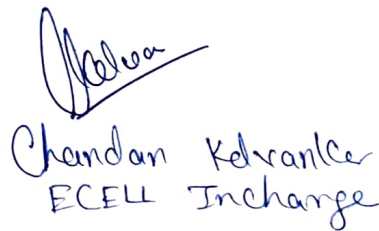 Chandan Kelvanker
ECELL Incharge